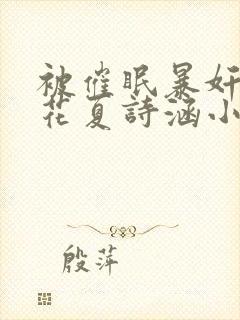 被催眠暴奸
花夏詩涵小
殷萍